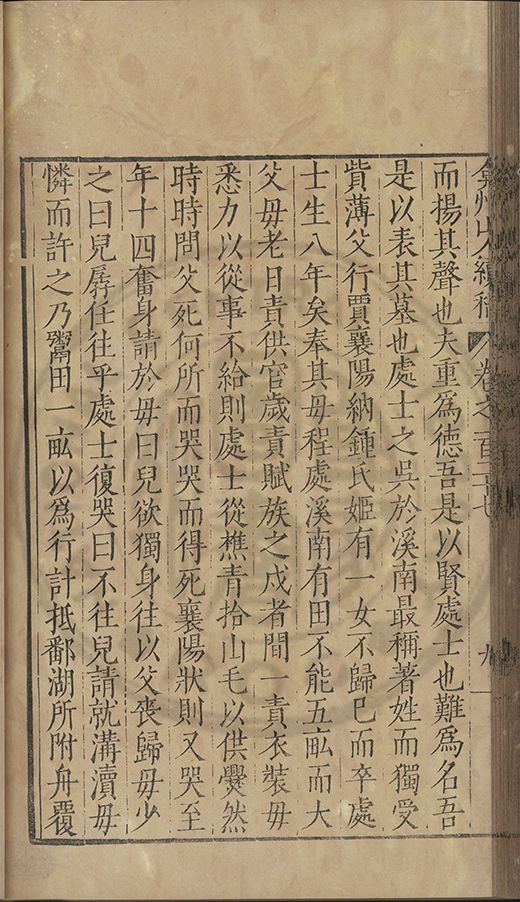 弇州山人續稿 卷之一百二十七 九
而揚其聲也夫重爲德吾是以賢處士也難爲名吾
是以表其墓也處士之吳於溪南最稱著姓而獨受
貲薄父行賈襄陽納鍾氏姬有一女不歸已而卒處
士生八年矣奉其母程處溪南有田不能五畝而大
父母老日責供官歲責賦族之戍者間一責衣裝母
悉力以從事不給則處士從樵青拾山毛以供爨然
時時問父死何所而哭哭而得死襄陽狀則又哭至
年十四奮身請於母曰兒欲獨身往以父喪歸母少
之曰兒孱任往乎處士復哭曰不往兒請就溝瀆母
憐而許之乃鬻田一畝以爲行計抵鄱湖所附舟覆